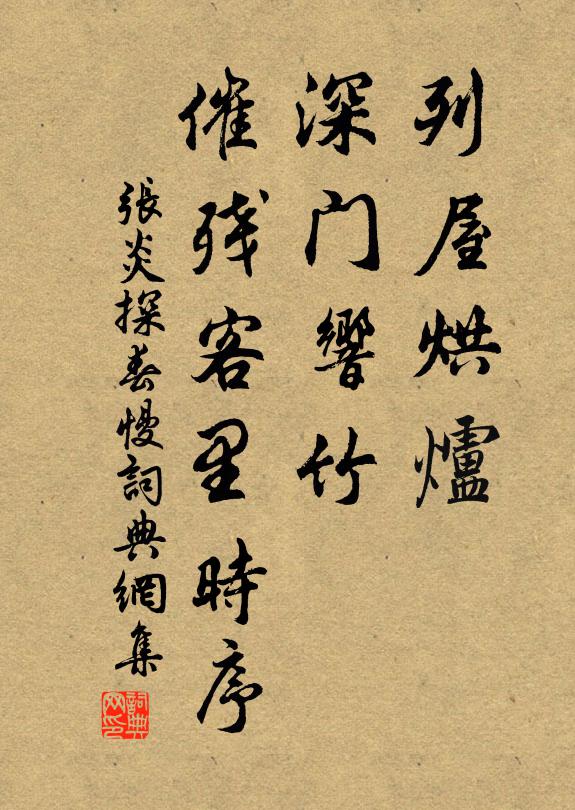 列屋烘爐
深門響竹
催残客里時序
張炎探春慢詞典網集
詞典网印